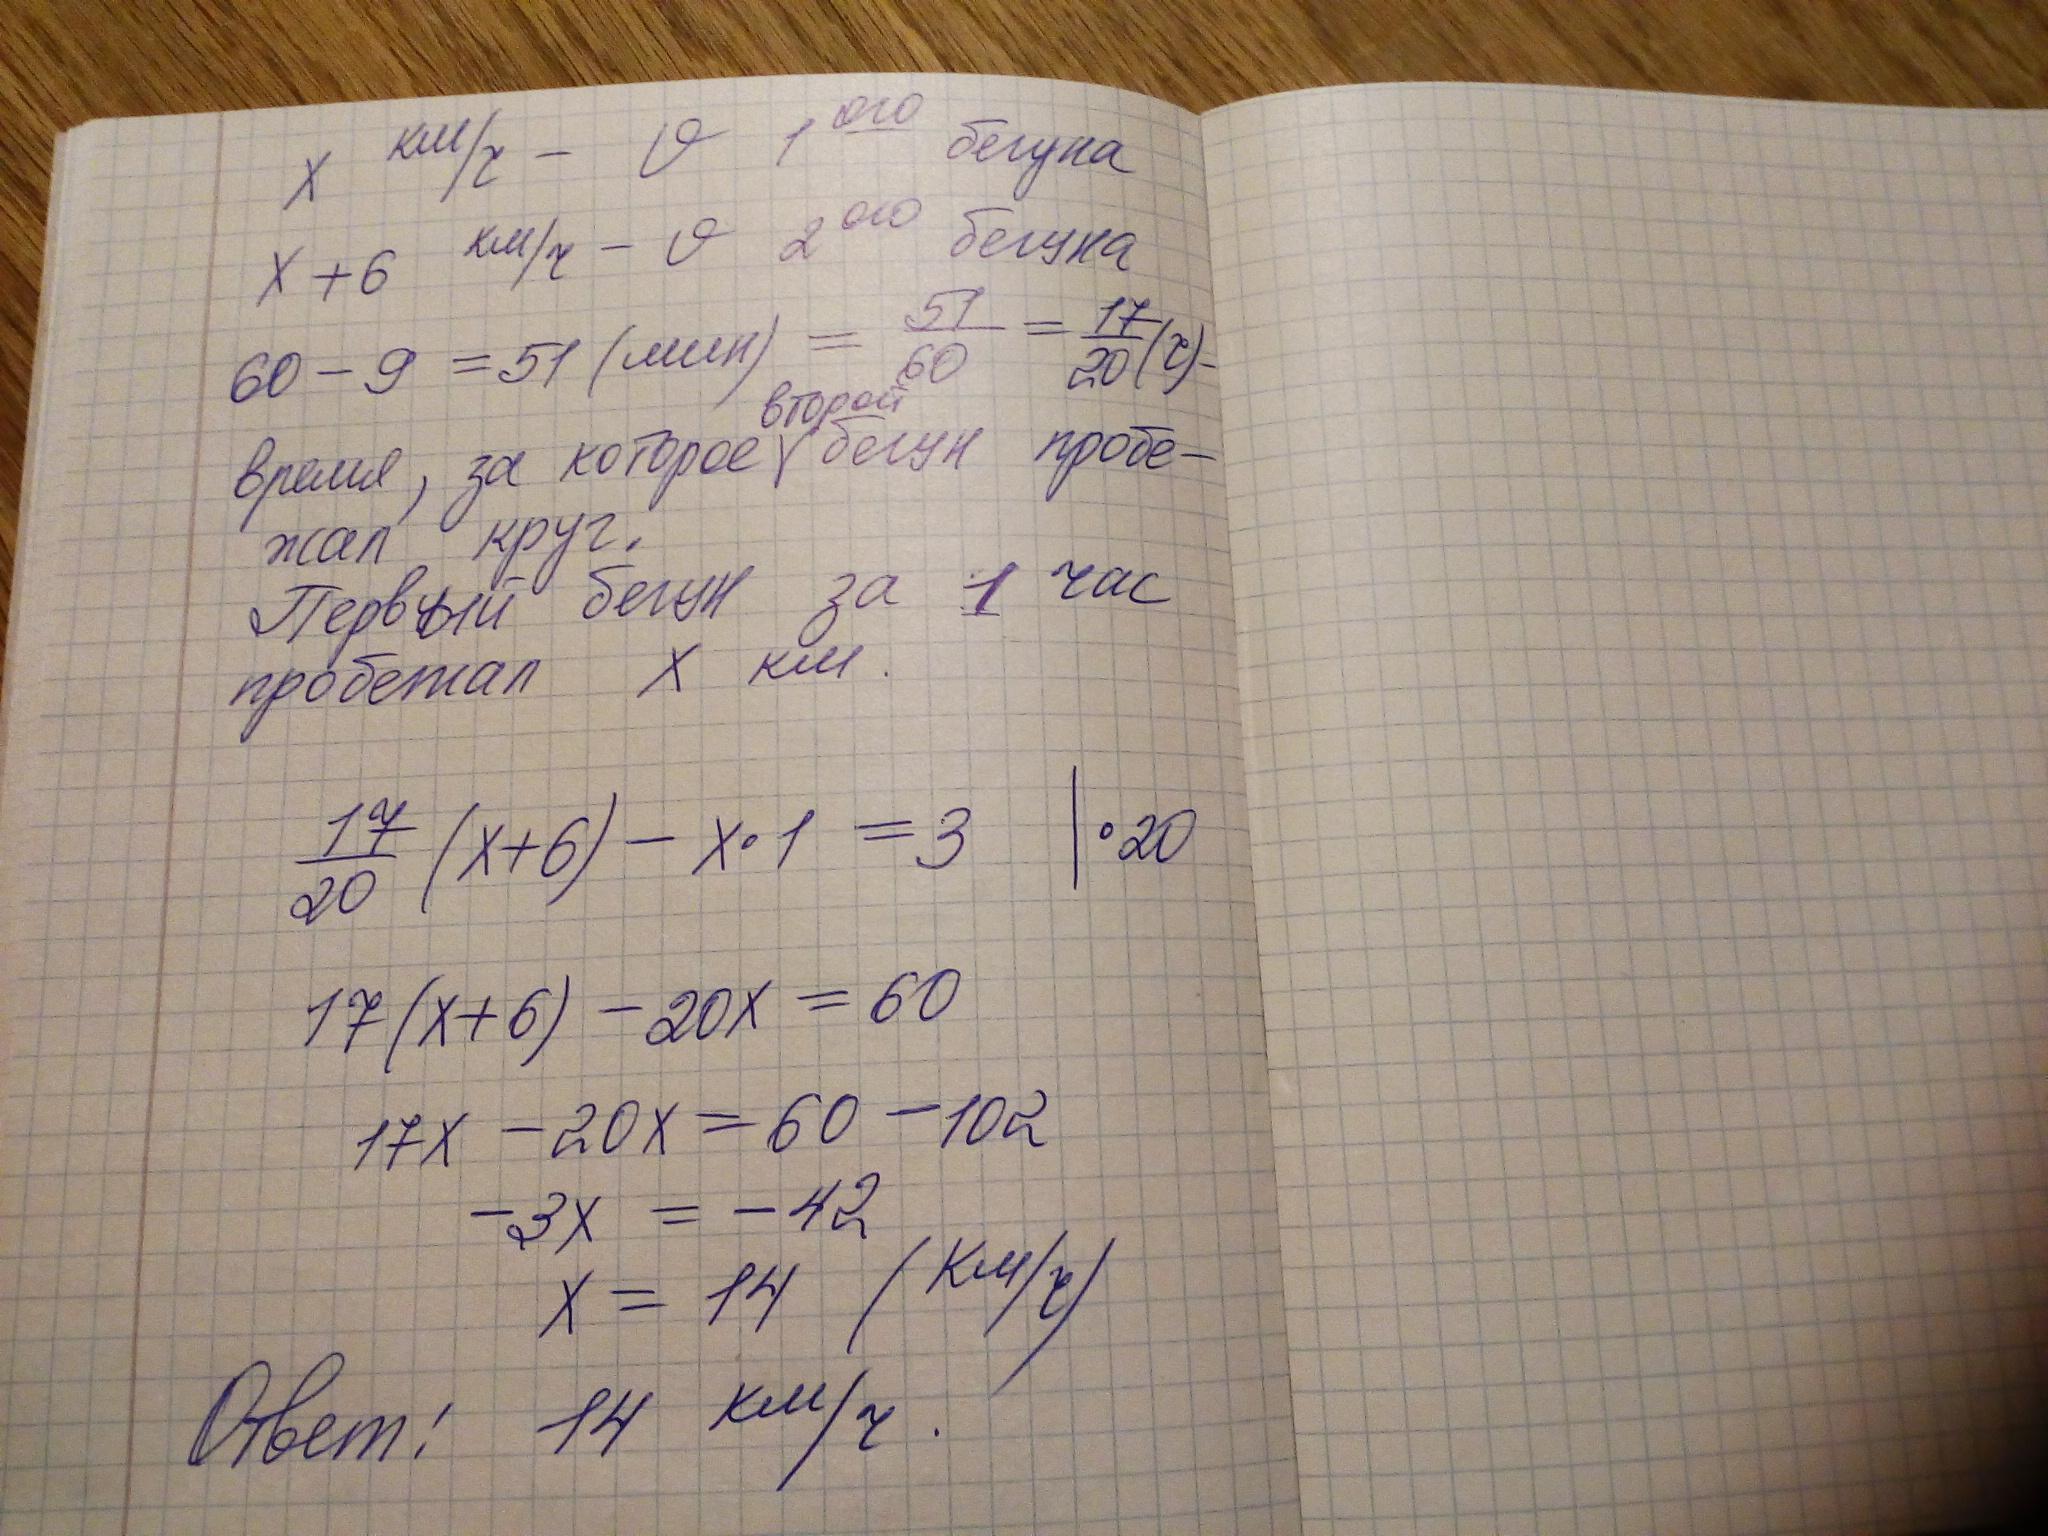 x км/ч – υ 1ого бегуна
x+6 км/ч – υ 2ого бегуна
60 – 9 = 51 (мин) = 51/60 = 17/20 (ч) –
время, за которое второй бегун пробе-
жал круг.
Первый бегун за 1 час
пробежал x км.
17/20 (x+6) – x·1 = 3 |·20
17(x+6) – 20x = 60
17x – 20x = 60 – 102
–3x = –42
x = 14 (км/ч)
Ответ: 14 км/ч.